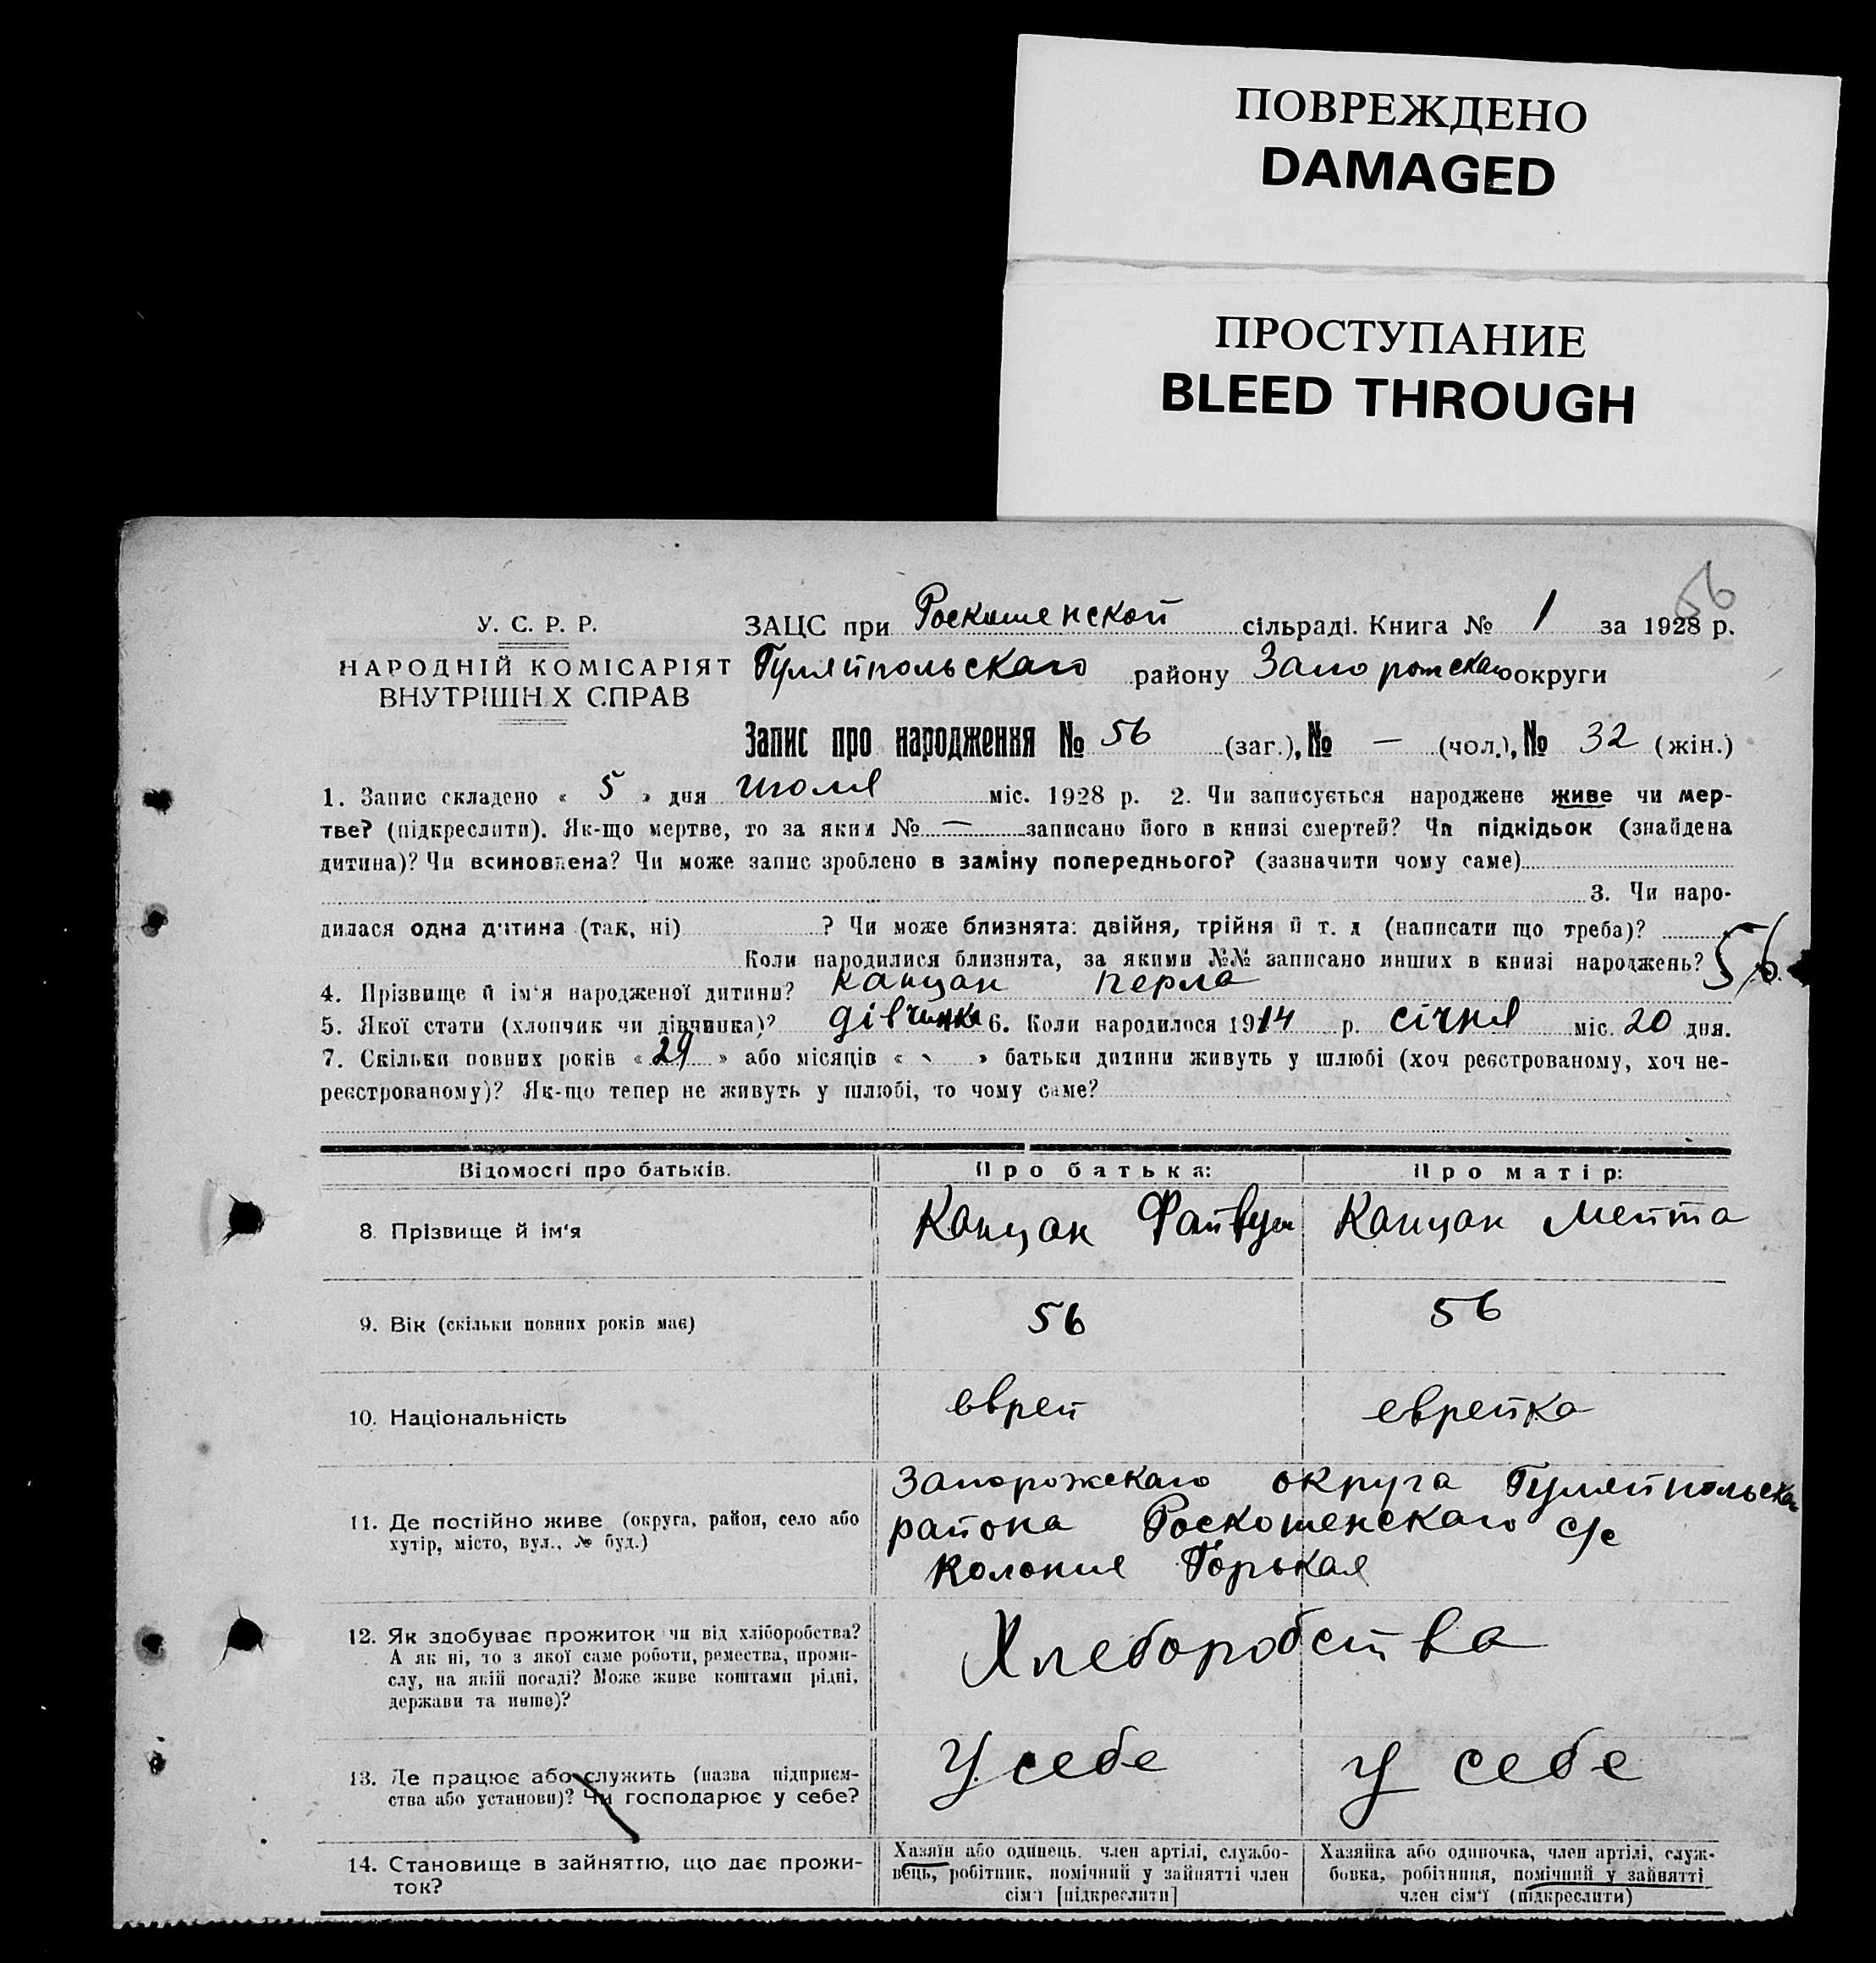 ПОВРЕЖДЕНО
DAMAGED
ПРОСТУПАНИЕ
BLEED THROUGH
56
У. С. Р. Р.
НАРОДНІЙ КОМІСАРІЯТ
ВНУТРІШНІХ СПРАВ
ЗАЦС при Роскошенской сільраді. Книга № 1 за 1928 р.
Гуляйпольскаго району Запорожскаго округи
Запис про народження № 56 (заг.), № — (чол.), № 32 (жін.)
1. Запис складено « 5 » дня июля міс. 1928 р. 2. Чи записується народжене живе чи мер-
тве? (підкреслити). Як-що мертве, то за яким № — записано його в книзі смертей? Чи підкідьок (знайдена
дитина)? Чи всиновлена? Чи може запис зроблено в заміну попереднього? (зазначити чому саме)
3. Чи наро-
дилася одна дитина (так, ні) ? Чи може близнята: двійня, трійня й т. д (написати що треба)?
Коли народилися близнята, за якими №№ записано инших в книзі народжень? 56.
4. Прізвище й ім'я народженої дитини? Канцан Перла
5. Якої стати (хлопчик чи дівчинка)? дівчинка 6. Коли народилося 1914 р. січня міс. 20 дня.
7. Скільки повних років « 29 » або місяців « » батьки дитини живуть у шлюбі (хоч реєстрованому, хоч не-
реєстрованому)? Як-що тепер не живуть у шлюбі, то чому саме?
Відомості про батьків. Про батька: Про матір:
8. Прізвище й ім'я Канцан Файвуш Канцан Мейта
9. Вік (скільки повних років має) 56 56
10. Національність еврей еврейка
11. Де постійно живе (округа, район, село або
хутір, місто, вул., № буд.)
Запорожскаго округа Гуляйпольскаго
района Роскошенскаго с/с
Колония Горькая
12. Як здобуває прожиток чи від хліборобства?
А як ні, то з якої саме роботи, ремества, проми-
слу, на якій посаді? Може живе коштами рідні,
держави та инше)?
Хлеборобства
13. Де працює або служить (назва підприєм-
ства або установи)? Чи господарює у себе?
У себе У себе
14. Становище в зайняттю, що дає прожи-
ток?
Хазяїн або одинець, член артілі, службо-
вець, робітник, помічний у зайнятті член
сім'ї [підкреслити]
Хазяйка або одиночка, член артілі, служ-
бовка, робітниця, помічний у зайнятті
член сім'ї (підкреслити)